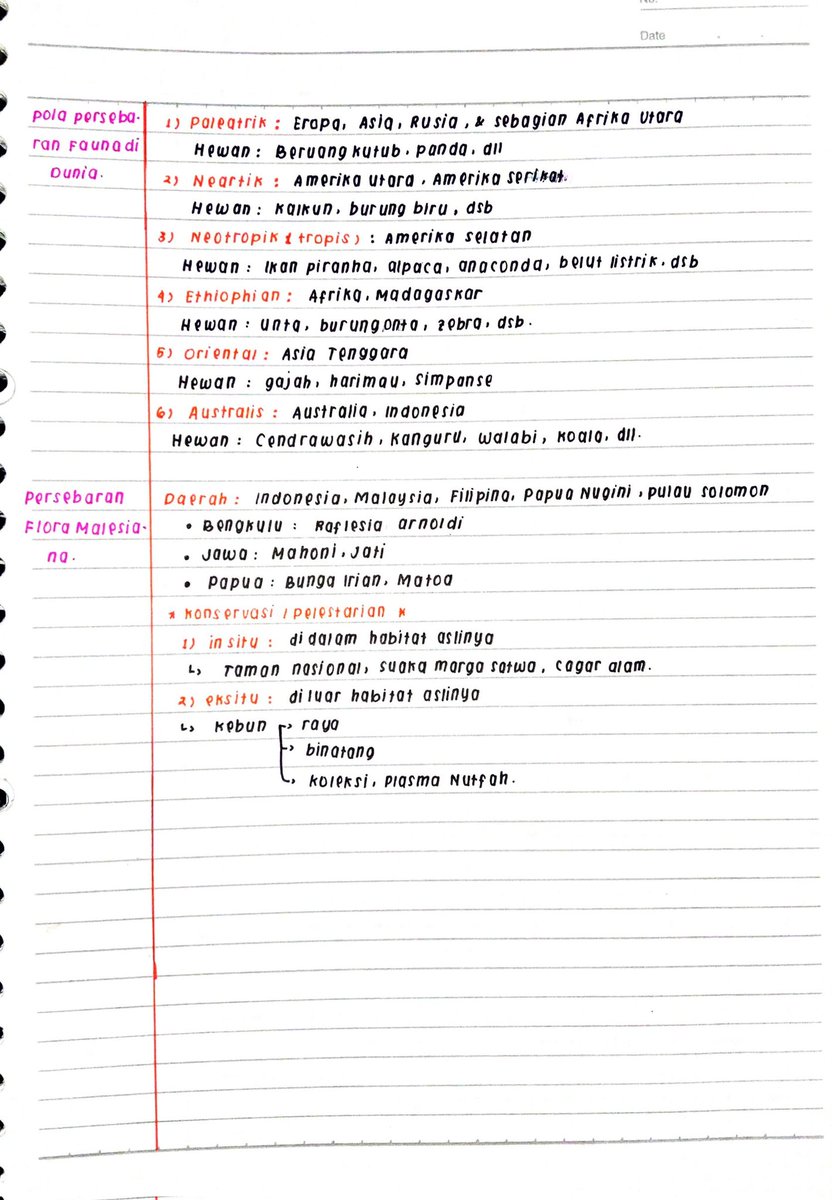 No.
Date
pola perseba-
ran Fauna di
Dunia.
1) Paleatrik : Eropa, Asia, Rusia, & sebagian Afrika Utara
Hewan : Beruang kutub, panda, dll
2) Neartik : Amerika utara, Amerika serikat.
Hewan : kalkun, burung biru, dsb
3) Neotropik (tropis) : Amerika selatan
Hewan : Ikan piranha, alpaca, anaconda, belut listrik, dsb
4) Ethiophian : Afrika, Madagaskar
Hewan : unta, burung onta, zebra, dsb.
5) Oriental : Asia Tenggara
Hewan : gajah, harimau, simpanse
6) Australis : Australia, Indonesia
Hewan : Cendrawasih, kanguru, walabi, koala, dll.
persebaran
Flora Malesia-
na.
Daerah : Indonesia, Malaysia, Filipina, Papua Nugini, pulau solomon
• Bengkulu : Raflesia arnoldi
• Jawa : Mahoni, Jati
• Papua : Bunga Irian, Matoa
* konservasi / pelestarian *
1) insitu : didalam habitat aslinya
↳ Taman nasional, suaka marga satwa, cagar alam.
2) eksitu : diluar habitat aslinya
↳ kebun → raya
→ binatang
→ koleksi, plasma Nutfah.